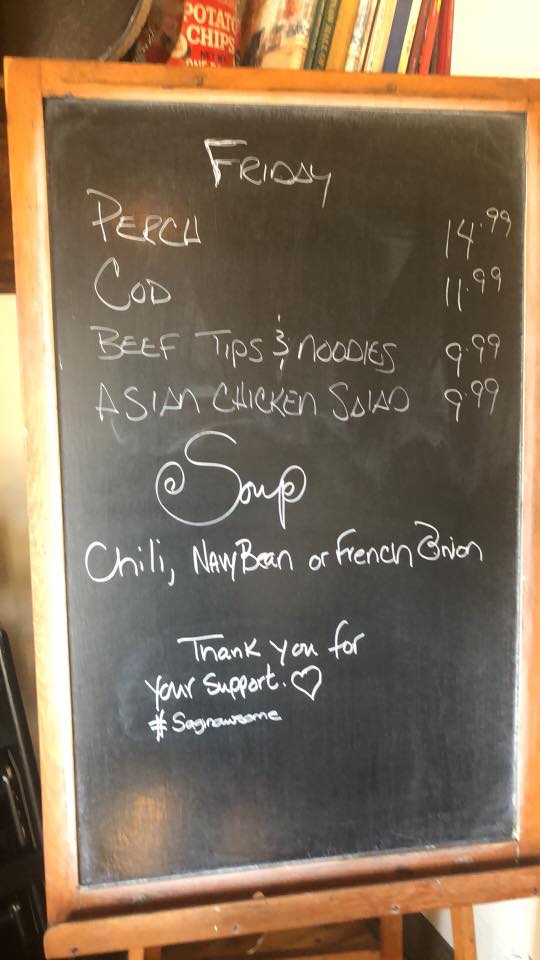 POTATO
CHIPS
FRIDAY
PERCH 14.99
COD 11.99
BEEF TIPS & NOODLES 9.99
ASIAN CHICKEN SALAD 9.99
Soup
Chili, NAVY Bean or French Onion
Thank you for
your support. ♡
#Saginawesome